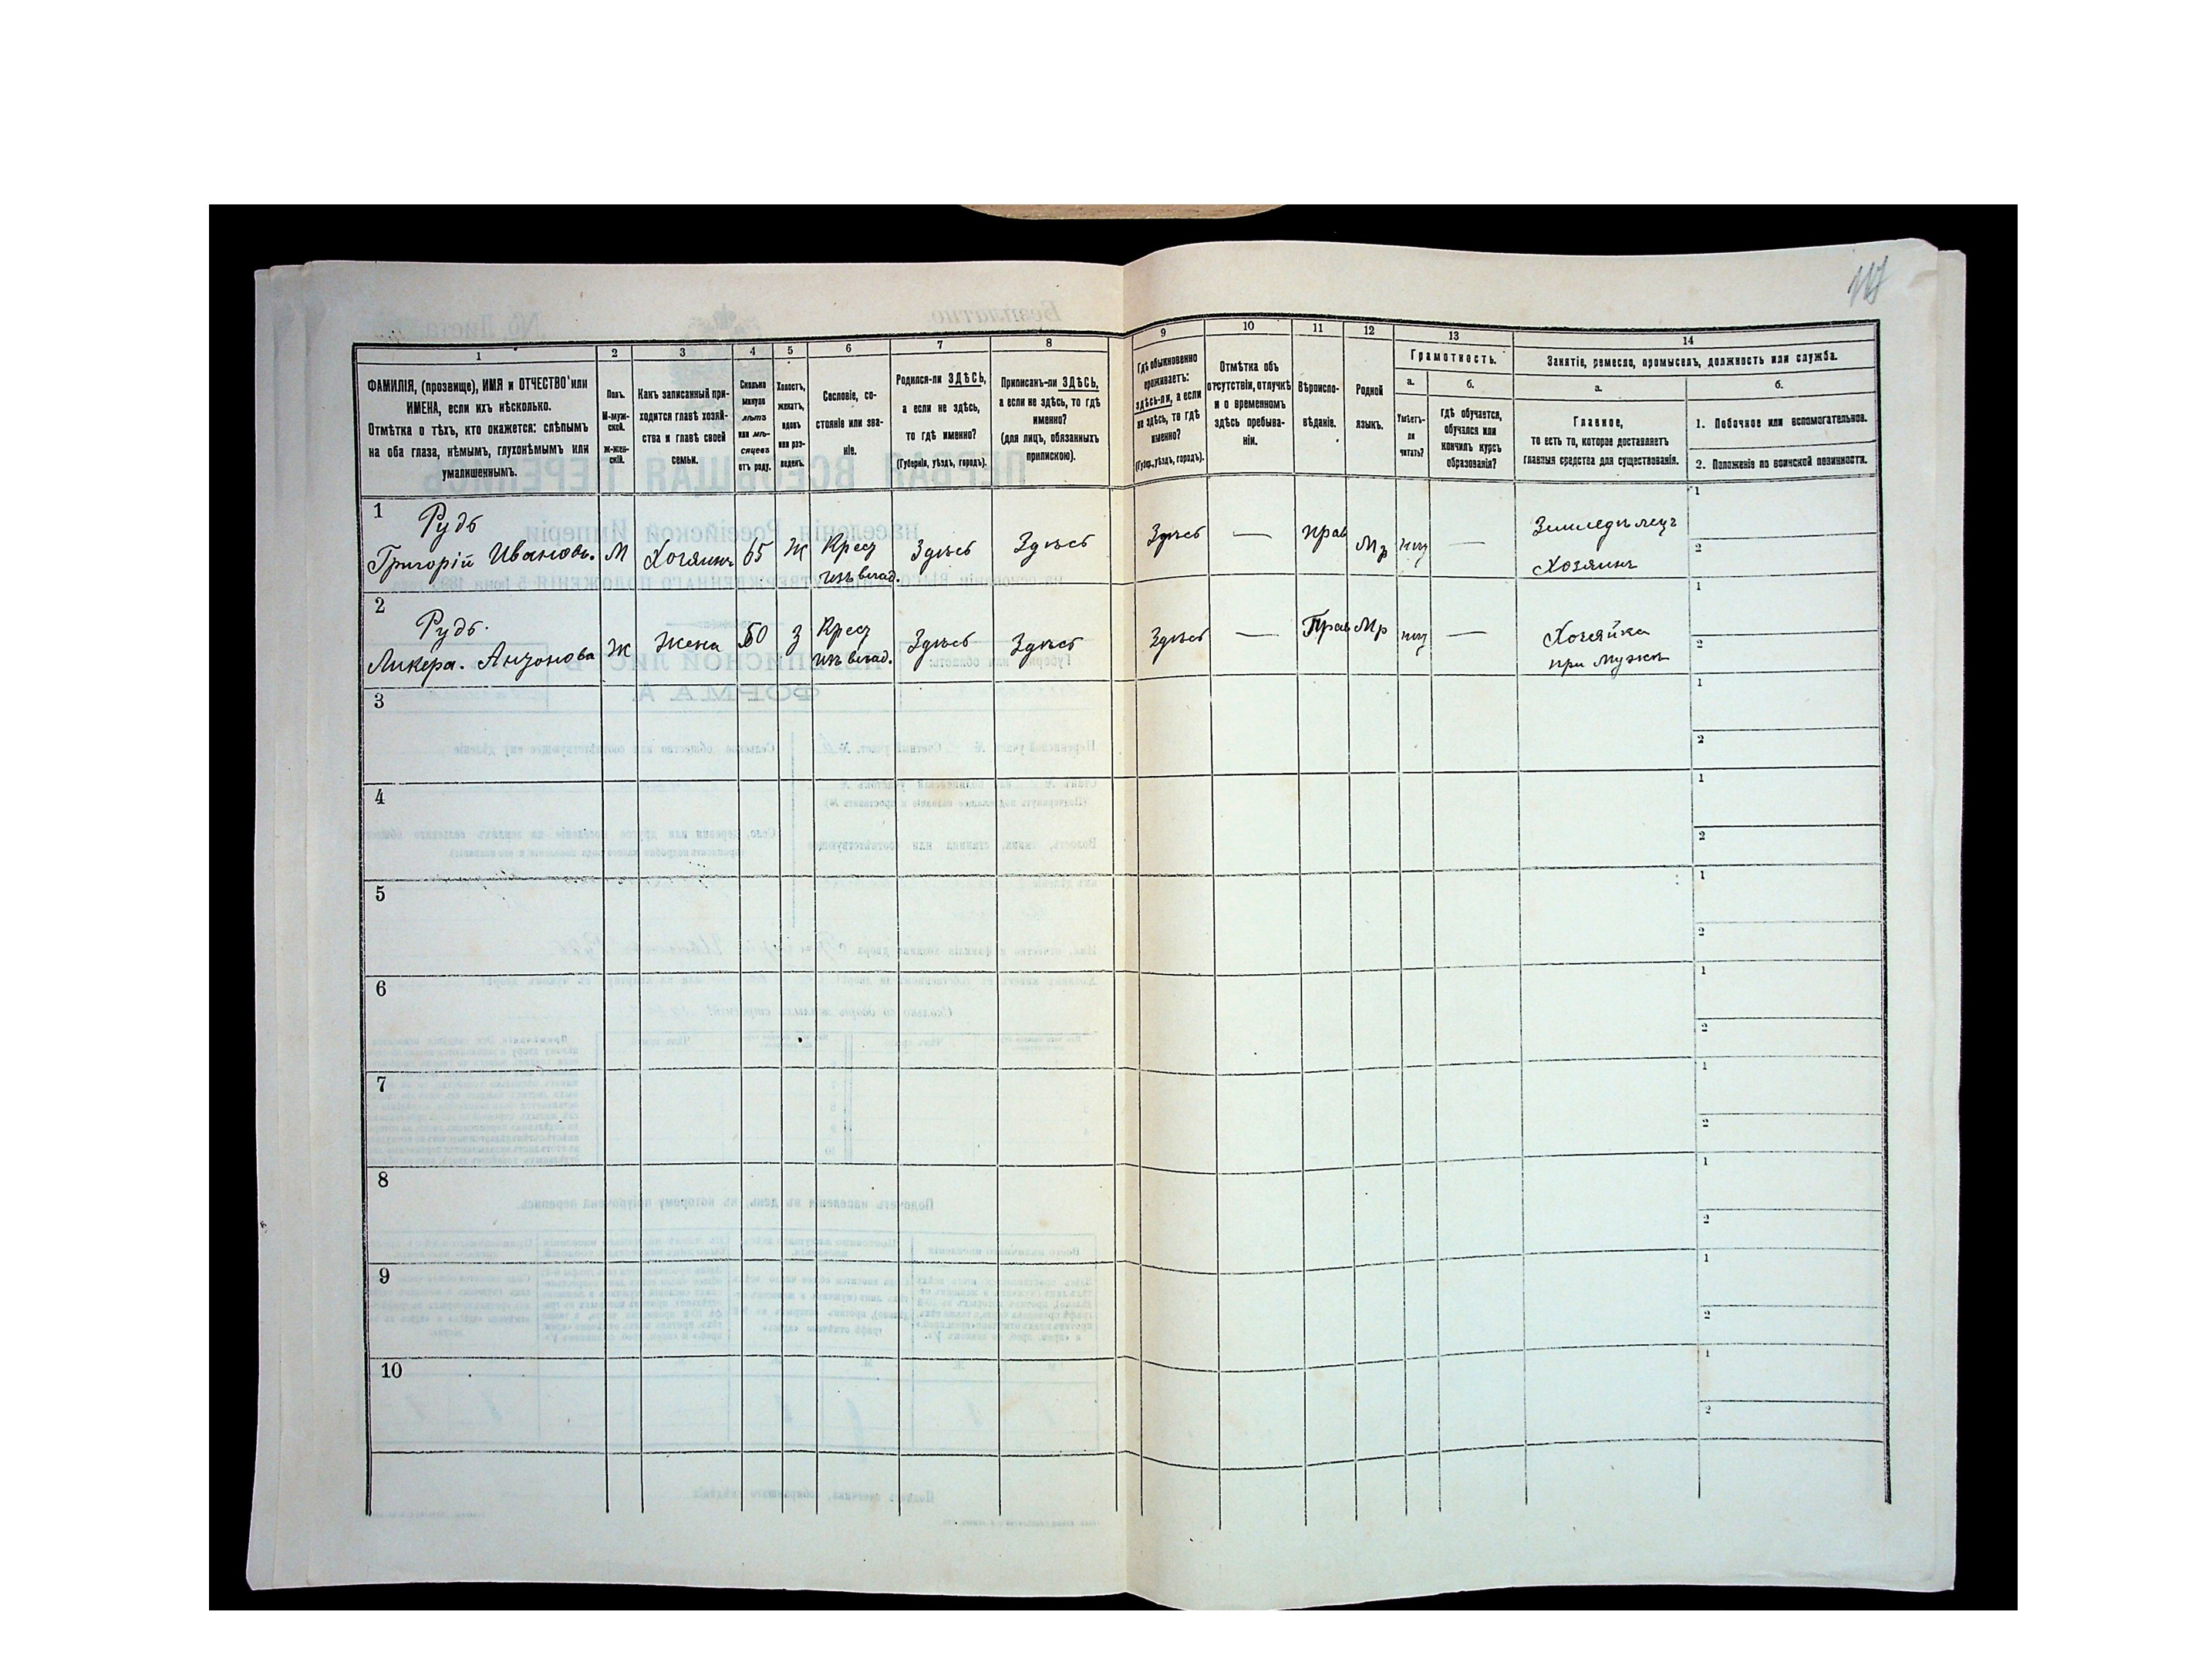 1
2
3
4
5
6
7
8
ФАМИЛІЯ, (прозвище), ИМЯ и ОТЧЕСТВО или
ИМЕНА, если ихъ нѣсколько.
Отмѣтка о тѣхъ, кто окажется: слѣпымъ
на оба глаза, нѣмымъ, глухонѣмымъ или
умалишеннымъ.
Полъ.
М-муж-
ской.
Ж-жен-
скій.
Какъ записанный при-
ходится главѣ хозяй-
ства и главѣ своей
семьи.
Сколько
минуло
лѣтъ
или мѣ-
сяцевъ
отъ роду.
Холостъ,
женатъ,
вдовъ
или раз-
веденъ.
Сословіе, со-
стояніе или зва-
ніе.
Родился-ли ЗДѢСЬ,
а если не здѣсь,
то гдѣ именно?
(Губернія, уѣздъ, городъ).
Приписанъ-ли ЗДѢСЬ,
а если не здѣсь, то гдѣ
именно?
(для лицъ, обязанныхъ
припискою).
9
10
11
12
13
14
Гдѣ обыкновенно
проживаетъ:
здѣсь-ли, а если
не здѣсь, то гдѣ
именно?
(Губер., уѣздъ, городъ).
Отмѣтка объ
отсутствіи, отлучкѣ
и о временномъ
здѣсь пребыва-
ніи.
Вѣроиспо-
вѣданіе.
Родной
языкъ.
Грамотность.
а.
б.
Умѣетъ-
ли
читать?
гдѣ обучается,
обучался или
кончилъ курсъ
образованія?
Занятіе, ремесло, промыселъ, должность или служба.
а.
б.
Главное,
то есть то, которое доставляетъ
главныя средства для существованія.
1. Побочное или вспомогательное.
2. Положеніе по воинской повинности.
1 Рудь
Григорій Ивановъ. М Хозяинъ 65 Ж Крест Здѣсь Здѣсь Здѣсь — прав Мр — Земледѣлецъ 1
Хозяинъ 2
2 Рудь.
Ликера. Антонова Ж Жена 60 З Крест Здѣсь Здѣсь Здѣсь — Прав Мр — Хозяйка 1
при мужѣ 2
3 1
2
4 1
2
5 1
2
6 1
2
7 1
2
8 1
2
9 1
2
10 1
2